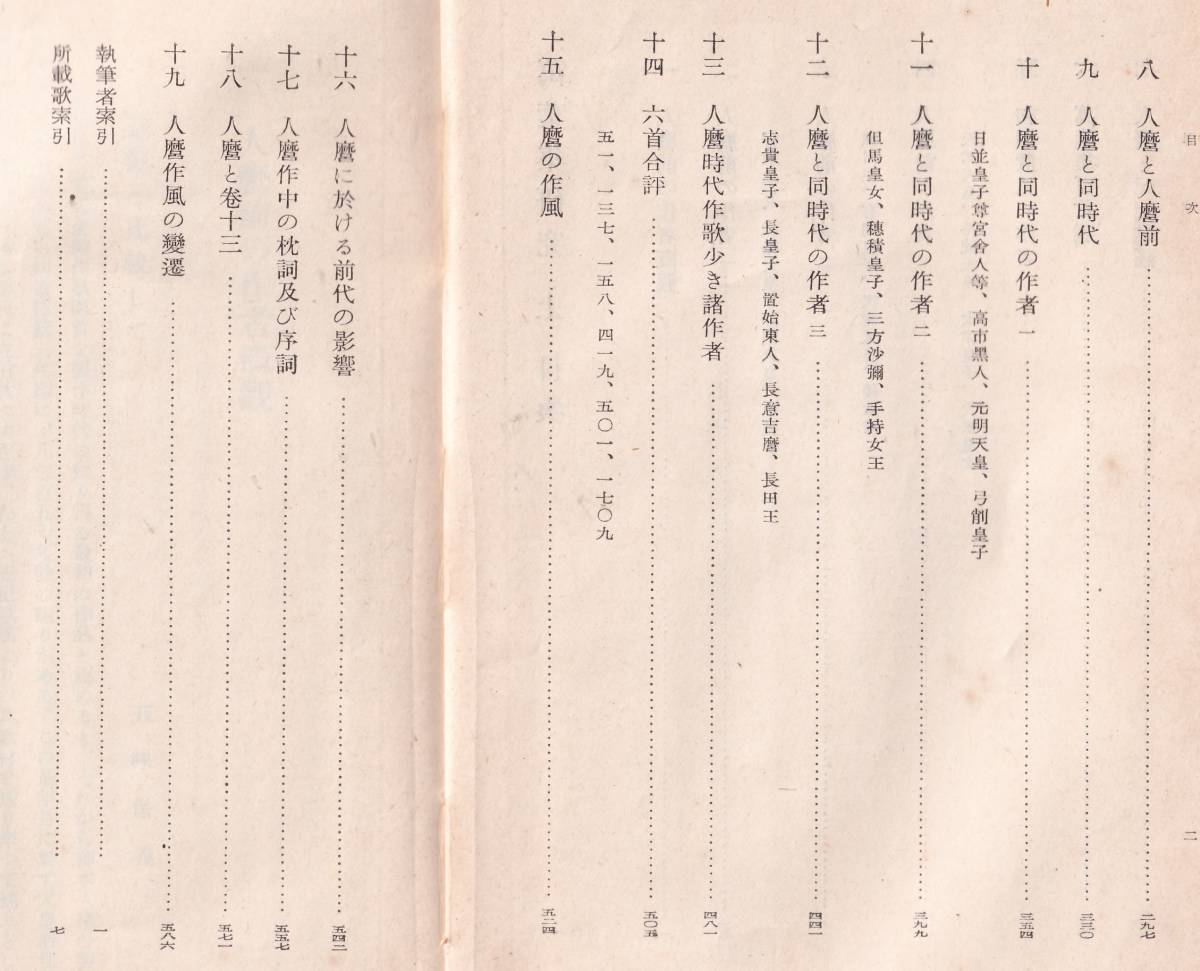 目次
二
八 人麿と人麿前……二九七
九 人麿と同時代……三三〇
十 人麿と同時代の作者 一……三五四
日並皇子尊宮舍人等、高市黑人、元明天皇、弓削皇子
十一 人麿と同時代の作者 二……三九九
但馬皇女、穗積皇子、三方沙彌、手持女王
十二 人麿と同時代の作者 三……四四一
志貴皇子、長皇子、置始東人、長意吉麿、長田王
十三 人麿時代作歌少き諸作者……四八一
十四 六首合評……五〇五
五一、一三七、一五八、四一九、五〇一、一七〇九
十五 人麿の作風……五二四
十六 人麿に於ける前代の影響……五四二
十七 人麿作中の枕詞及び序詞……五五七
十八 人麿と卷十三……五七一
十九 人麿作風の變遷……五八六
執筆者索引……一
所載歌索引……七